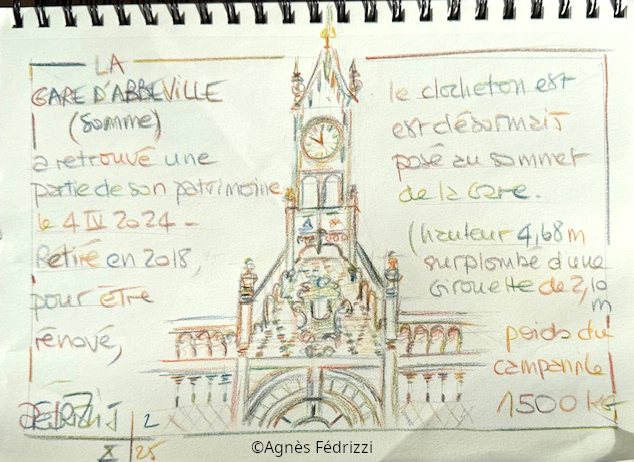 LA
GARE D'ABBEVILLE
(Somme)
a retrouvé une
partie de son patrimoine
le 4 IV 2024 -
Retiré en 2018,
pour être
rénové,
le clocheton est
est désormais
posé au sommet
de la Gare.
(hauteur 4,68 m
surplombé d'une
Girouette de 2,10
m
poids du
campanile
1500 kg
2
X 25
©Agnès Fédrizzi